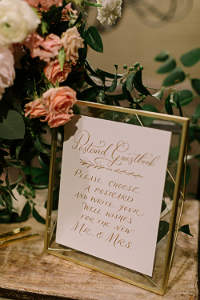 Postcard Guestbook
PLEASE CHOOSE
A POSTCARD
AND WRITE YOUR
WELL WISHES
FOR THE NEW
MR. & MRS.